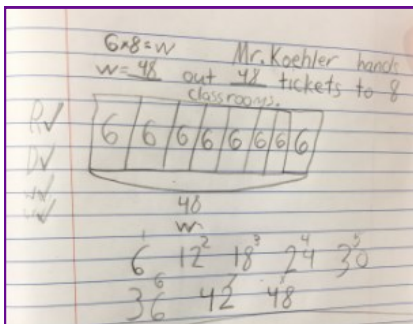 6×8=w
Mr. Koehler hands
w=48 out 48 tickets to 8
classrooms.
R✓
D✓
W✓
W✓
6 6 6 6 6 6 6 6
48
w
1 2 3 4 5
6 12 18 24 30
6 7 8
36 42 48